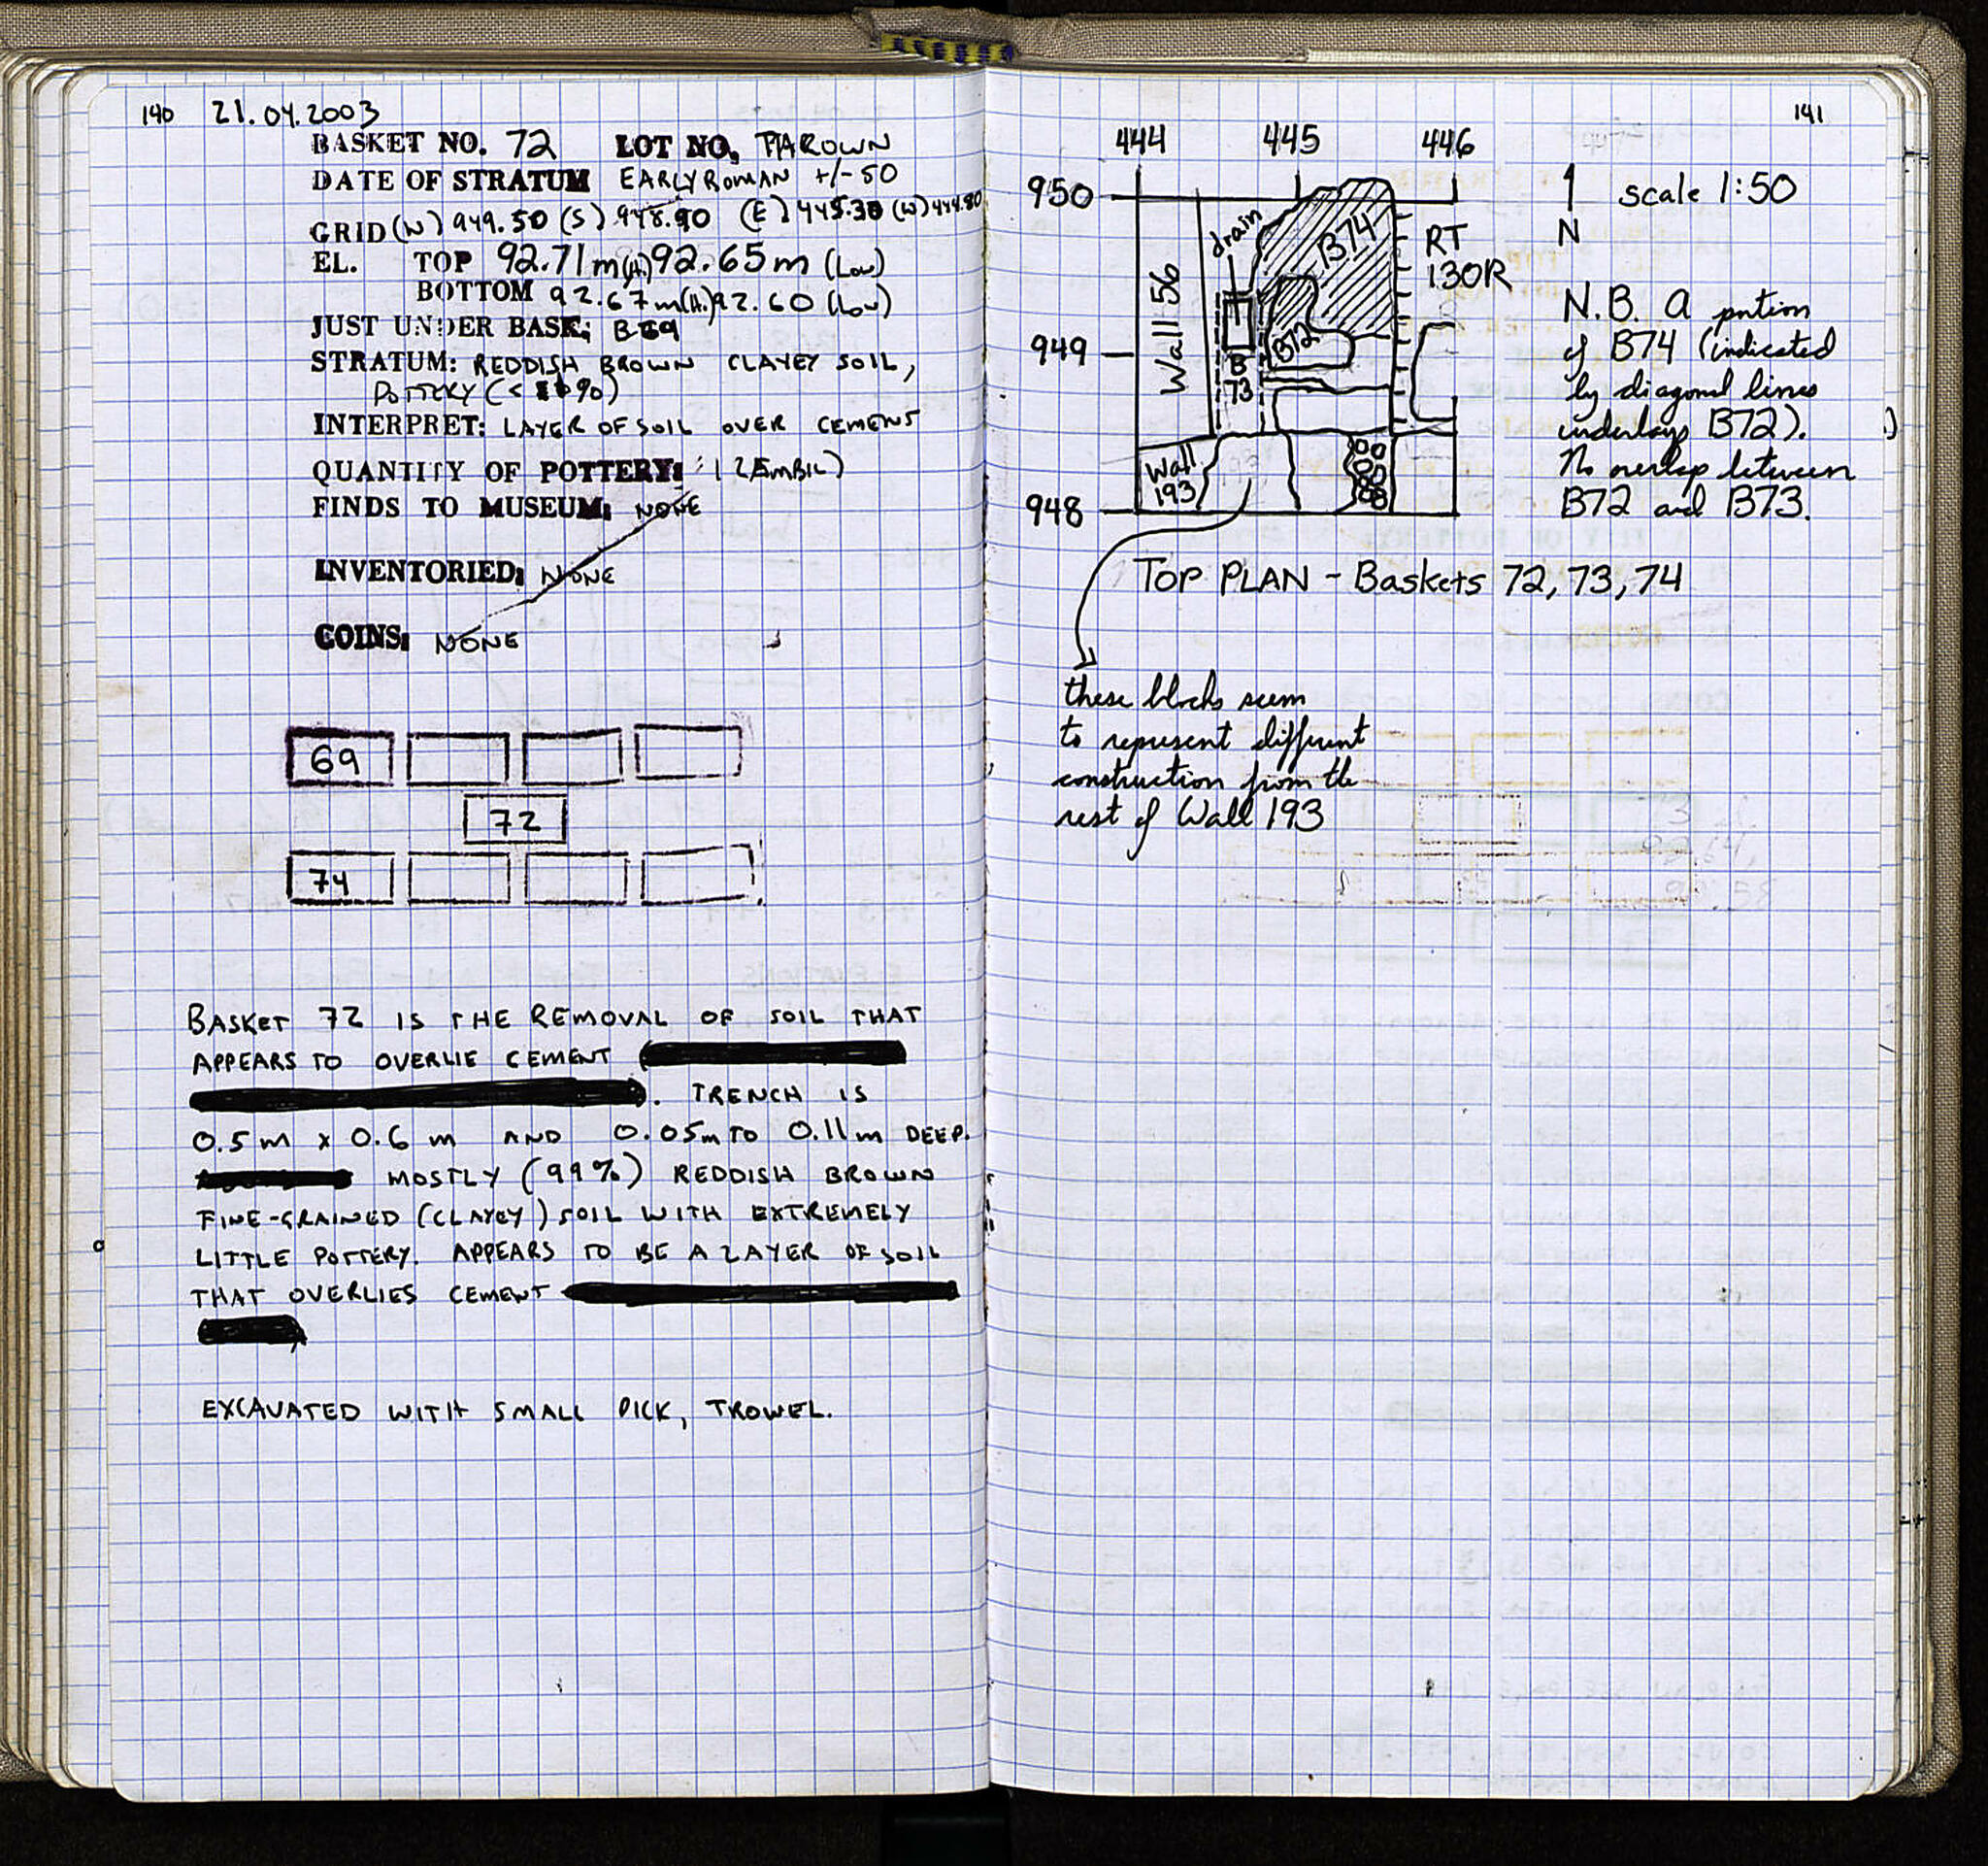 140 21.04.2003
BASKET NO. 72 LOT NO.
DATE OF STRATUM EARLY ROMAN +/- 50
GRID (N) 949.50 (S) 948.90 (E) 445.30 (W) 444.80
EL. TOP 92.71m (H) 92.65m (Low)
BOTTOM 92.67m (H.) 92.60 (Low)
JUST UNDER BASK: B69
STRATUM: REDDISH BROWN CLAYEY SOIL,
POTTERY (<
INTERPRET: LAYER OF SOIL OVER CEMENT
QUANTITY OF POTTERY:
FINDS TO MUSEUM: NONE
INVENTORIED: NONE
COINS: NONE
69
72
74
BASKET 72 IS THE REMOVAL OF SOIL THAT
APPEARS TO OVERLIE CEMENT
. TRENCH IS
0.5 m x 0.6 m AND 0.05m TO 0.11m DEEP.
MOSTLY (99%) REDDISH BROWN
FINE-GRAINED (CLAYEY) SOIL WITH EXTREMELY
LITTLE POTTERY. APPEARS TO BE A LAYER OF SOIL
THAT OVERLIES CEMENT
EXCAVATED WITH SMALL PICK, TROWEL.
141
444 445 446
950
949
948
Wall 56
drain
B74
B72
B
73
RT
130R
Wall
193
N
scale 1:50
N.B. A portion
of B74 (indicated
by diagonal lines
underlays B72).
No overlap between
B72 and B73.
TOP PLAN - Baskets 72, 73, 74
these blocks seem
to represent different
construction from the
rest of Wall 193